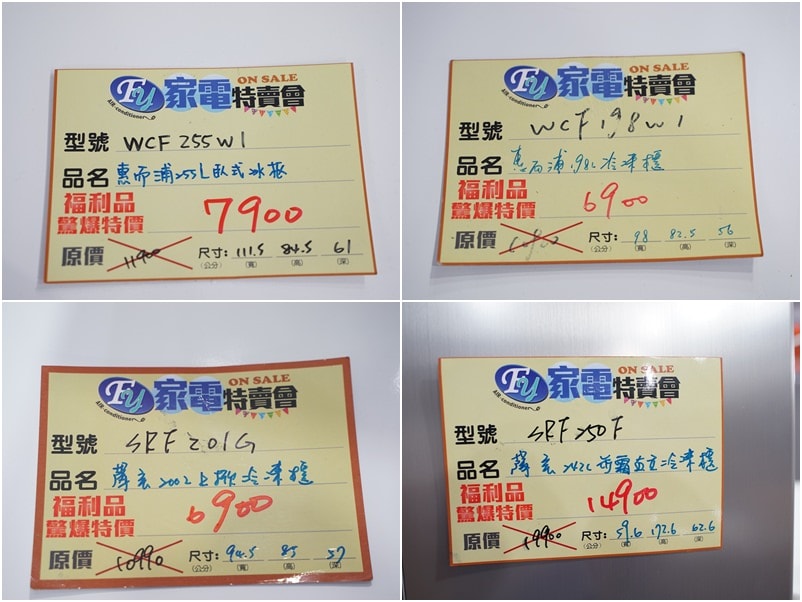 ON SALE
Fu 家電特賣會
Air-conditioner
型號 WCF 255W1
品名 惠而浦255L臥式冰櫃
福利品
驚爆特價 7900
原價 11900 尺寸: 111.5 84.5 61
(公分) (寬) (高) (深)
ON SALE
Fu 家電特賣會
Air-conditioner
型號 WCF 198W1
品名 惠而浦198L冷凍櫃
福利品
驚爆特價 6900
原價 10900 尺寸: 98 82.5 56
(公分) (寬) (高) (深)
ON SALE
Fu 家電特賣會
Air-conditioner
型號 SRF 201G
品名 聲寶200L上掀冷凍櫃
福利品
驚爆特價 6900
原價 10990 尺寸: 94.5 85 57
(公分) (寬) (高) (深)
ON SALE
Fu 家電特賣會
Air-conditioner
型號 SRF 250F
品名 聲寶242L無霜直立冷凍櫃
福利品
驚爆特價 14900
原價 19900 尺寸: 59.6 172.6 62.6
(公分) (寬) (高) (深)